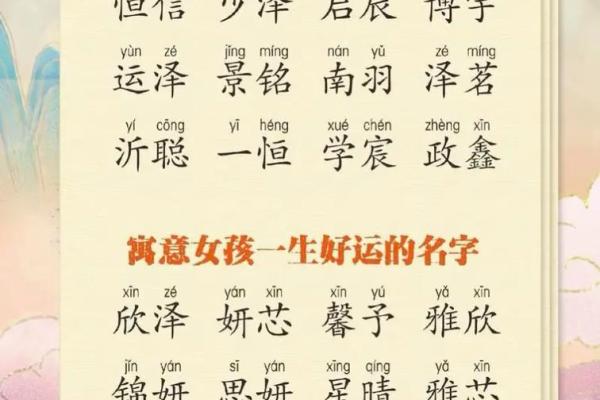 恒信 少泽 君宸 博宇
yùn zé jǐng míng nán yǔ zé míng
运泽 景铭 南羽 泽茗
yí cōng yī héng xué chén zhèng xīn
沂聪 一恒 学宸 政鑫
寓意女孩一生好运的名字
xīn zé yán xīn xīn yú yǎ xīn
欣泽 妍芯 馨予 雅欣
jǐn yán sī yán xīng qíng yǎ xīn
锦妍 思妍 星晴 雅芯